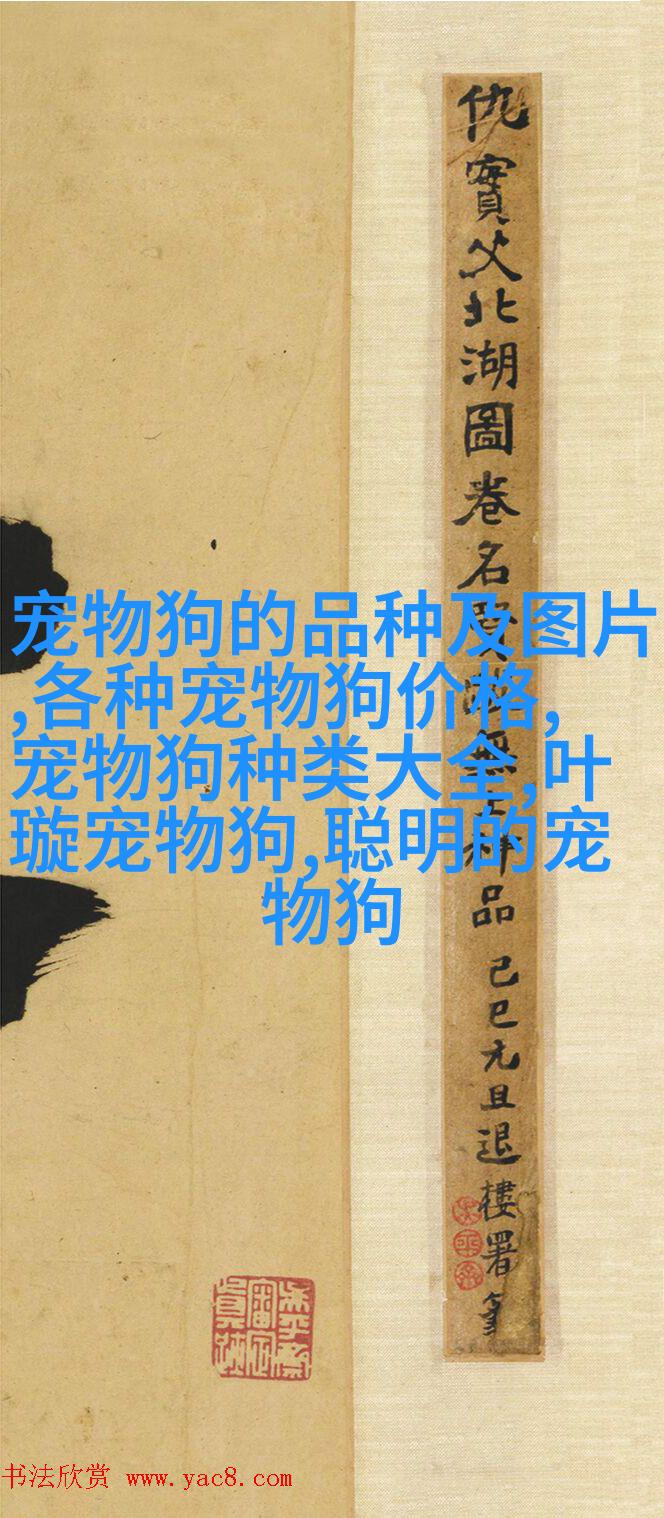 仇實父北湖圖卷名賢無上神品 己巳元旦退樓署
吳平齋
吳平齋審定真跡
宠物狗的品种及图片
,各种宠物狗价格,
宠物狗种类大全,叶
璇宠物狗,聪明的宠
物狗
书法欣赏 www.yac8.com